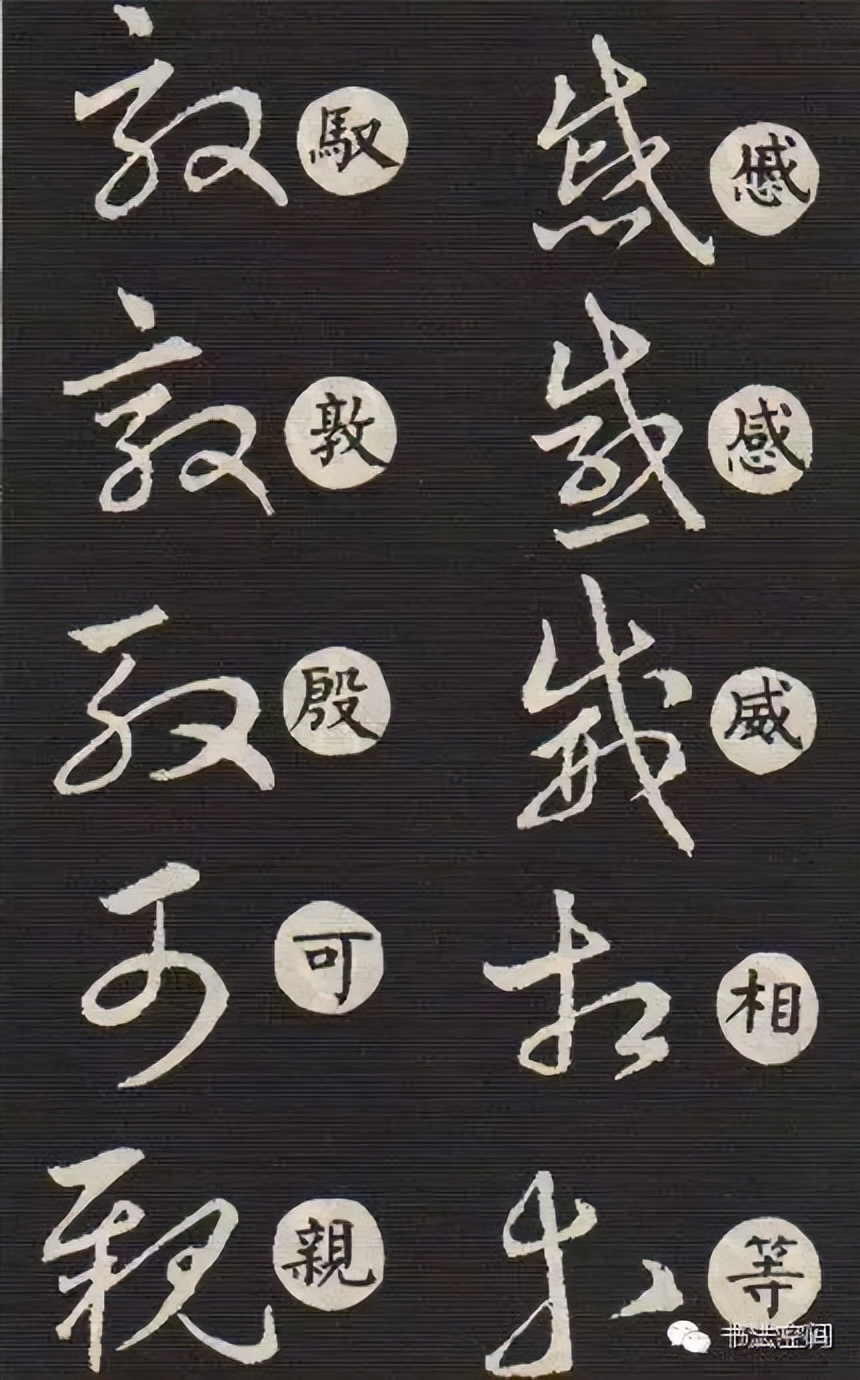 慼 感 威 相 等
馭 敦 殷 可 親
书法空间